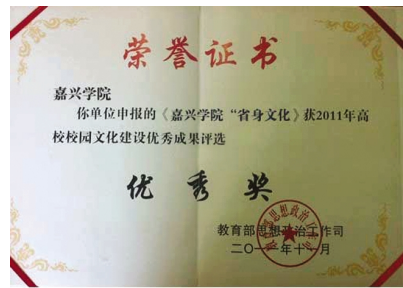 荣誉证书
嘉兴学院
你单位申报的《嘉兴学院“省身文化》获2011年高
校校园文化建设优秀成果评选
优秀奖
教育部思想政治工作司
二〇一一年十一月